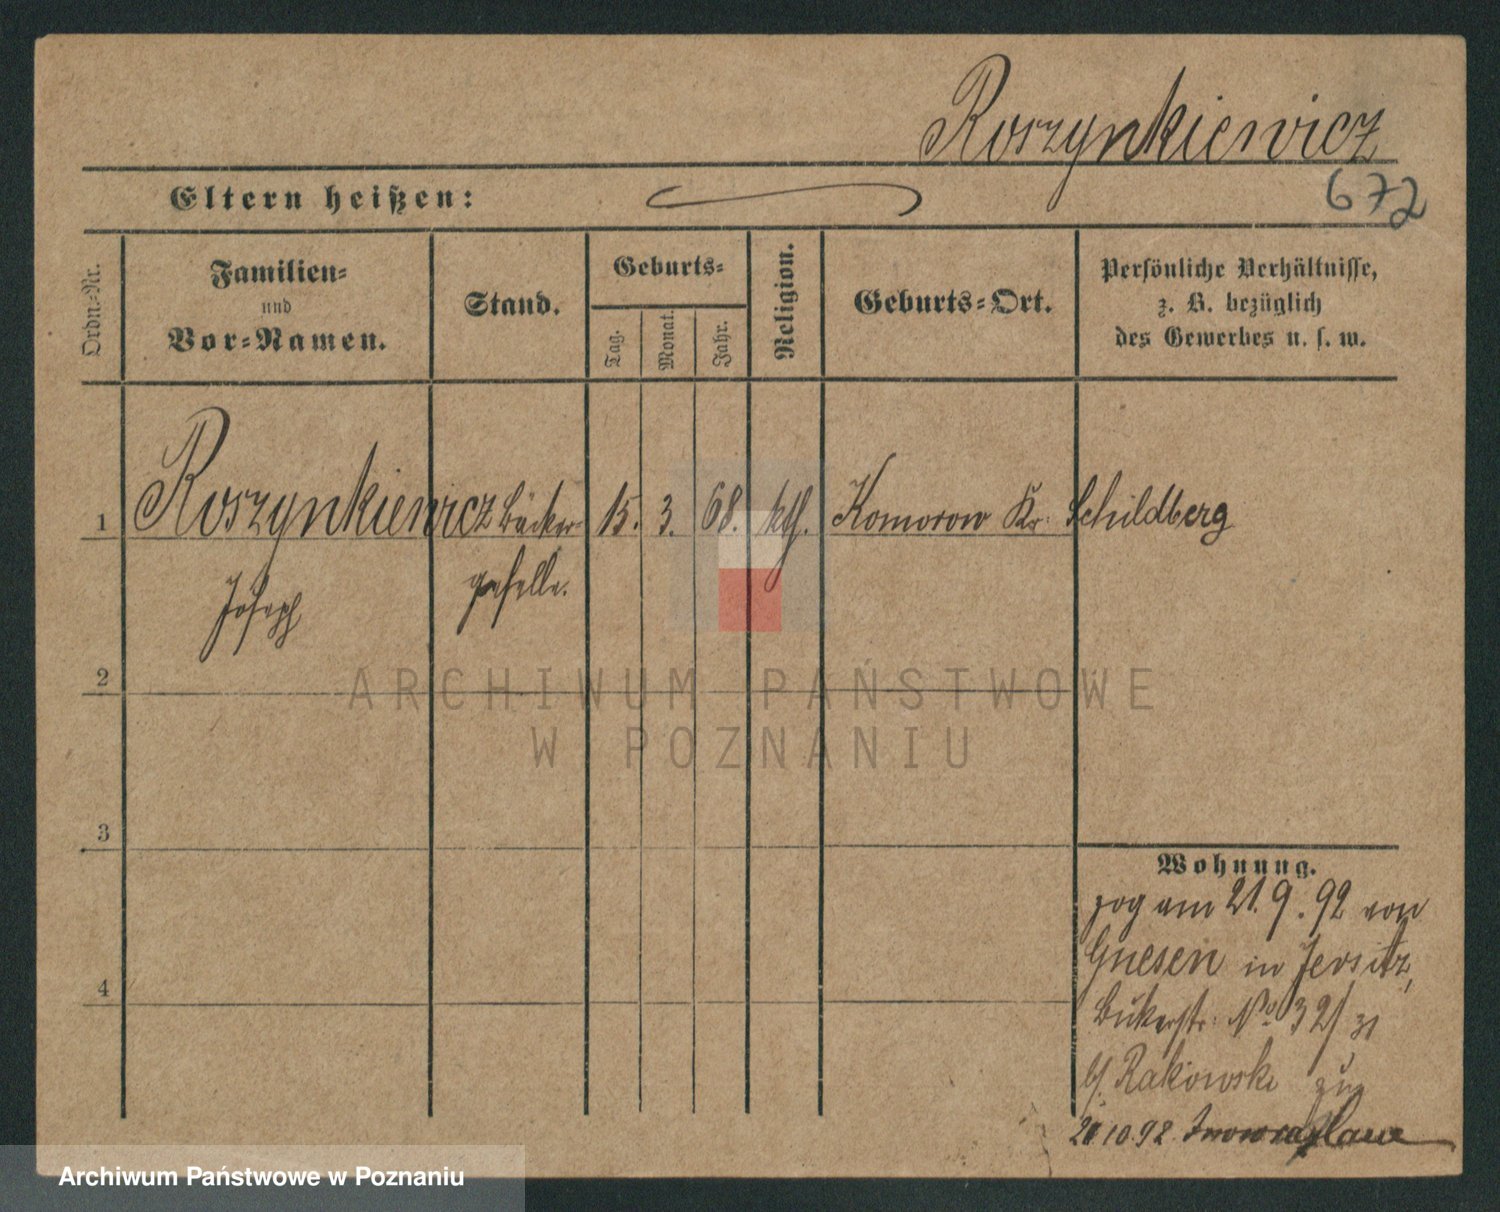 Roszynkiewicz
672
Eltern heißen:
Ordn.-Nr.
Familien-
und
Vor-Namen.
Stand.
Geburts-
Tag.
Monat.
Jahr.
Religion.
Geburts-Ort.
Persönliche Verhältnisse,
z. B. bezüglich
des Gewerbes u. s. w.
1 Roszynkiewicz Bäcker- 15. 3. 68. kth. Komorow Kr. Schildberg
Joseph geselle.
2
3
4
Wohnung.
zog am 21.9.92 von
Gnesen in Jersitz,
Bukerstr. No 32/31
b/ Rakowski
10.92
ARCHIWUM PAŃSTWOWE
W POZNANIU
Archiwum Państwowe w Poznaniu